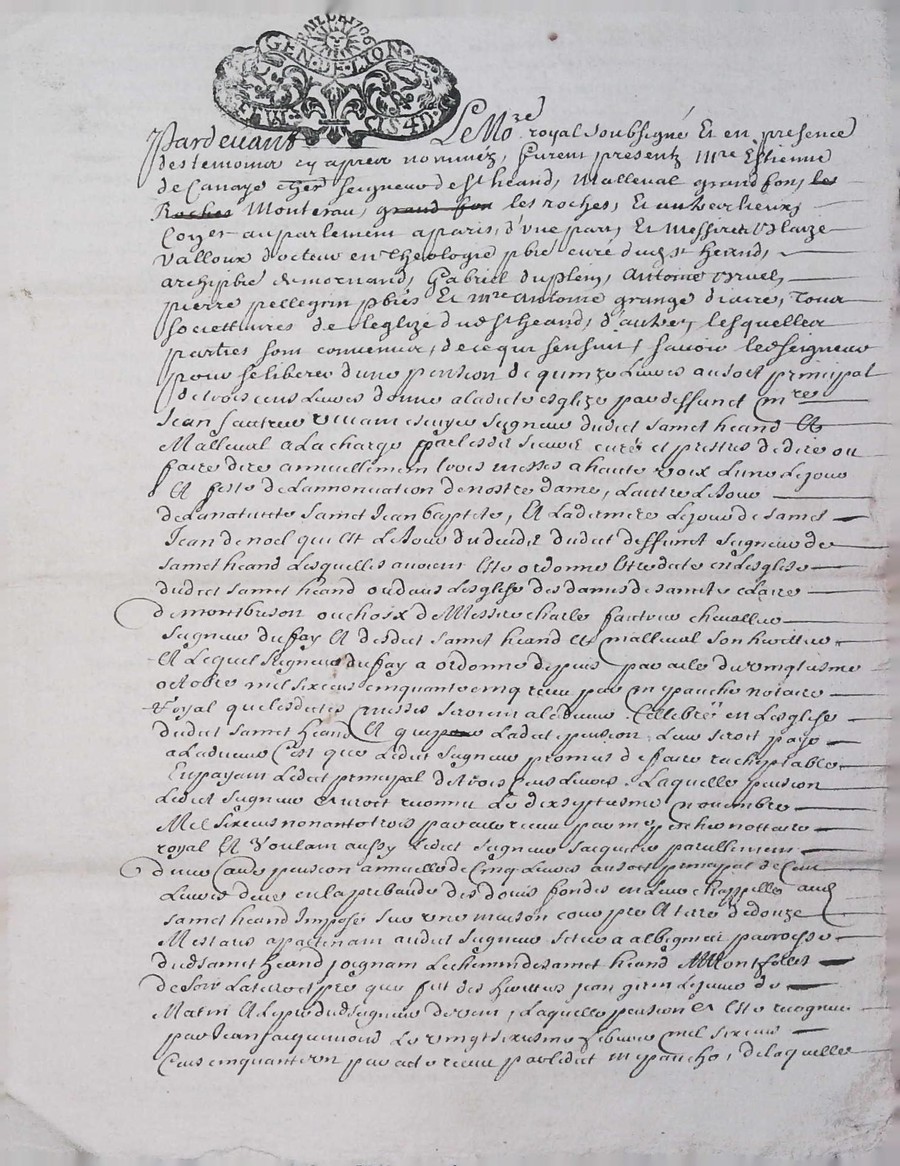 BAIL DE 1706
GEN·DE·LION
Pardevant Le No.re royal soubsigné Et en presence
des temoins cy apres nommés, furent presents Mre Estienne
de Canaye cher seigneur de st heand, Malleval grandfon, les
Roches Monterau, grand fon les roches, Et autres lieux,
Coner au parlement a paris, d'une part, Et Messire Blaize
Valloux docteur en theologie pbre curé dud st heand,
archipbre de mornand, Gabriel duplein, Antoine
pierre pellegrin pbres Et mre Antoine grange diacre, Tous
societtaires de leglize dud st heand, d'autre, lesquelles
parties sont convenues, de ce qui sensuit, savoir led seigneur
pour se liberer d'une pension de quinze Livres au sort principal
de trois cens Livres donné a ladicte esglize par deffunct mre
Jean fautrier vivant escuyer seigneur dudict sainct heand Et
Malleval a la charge par lesdit sieurs curé et prestres de dire ou
faire dire annuellement trois messes a haute voix L'une le jour
Et feste de Lannonciation de nostre dame, Lautre le Jour
de la nativite sainct Jean baptiste, Et La derniere le jour de sainct
Jean de noel qui est le Jour du deceds dudict deffunct seigneur de
sainct heand Lesquelles avoient Esté ordonné Estre dicte en Lesglise
dudict sainct heand ou dans Lesglise des dames de saincte claire
de montbrison ou choix de Messire charle fautrier chevallier
seigneur du fay Et dudict sainct heand et malleval son heritier
Et Lequel seigneur du fay a ordonné depuis par acte du vingtiesme
octobre mil six cens cinquante cinq receu par me panche notaire
Royal que lesdictes messes seroient a Ladvenir Cellebré en Lesglise
dudict sainct heand Et que Ladict pension Leur seroit payé
a Ladvenir C'est que Ledict seigneur promis de faire rachaptable
En payant Ledict principal de trois cens Livres. Laquelle pension
Ledict seigneur auroit reconnu Le dix septiesme novembre
Mil six cens nonante trois par acte receu par me notaire
royal Et voulant aussy Ledict seigneur sacquiter parellement
d'une autre pension annuelle de Cinq Livres au sort principal de Cent
Livres deue en la prebande des douis fondés en Leur chappelle aud
sainct heand Imposé sur une maison cour pré Et terre de douze
Mestans apartenant audict seigneur situé a albigneu parroisse
dud sainct heand joignant Lechemin de sainct heand Montfollet
de soir La terre et pré que fut des heritiers jean girin Lejeune de
Matin Et Le pré dud seigneur de vent, Laquelle pension Et Esté recognue
par Jean Jacquemond Le vingt sixiesme febvrier mil six cens
Cens cinquante un par acte receu par Ledict me panche, de laquelle